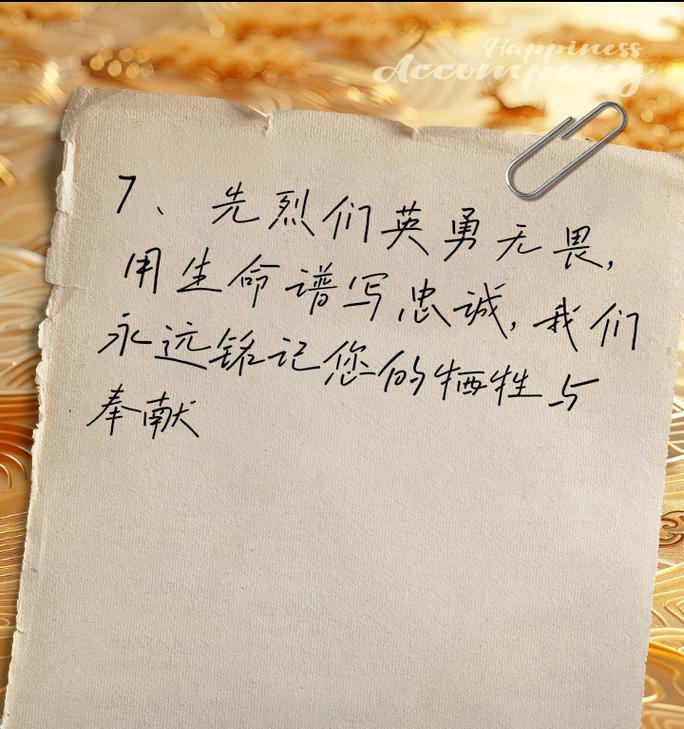 Happiness
Accompany
7、先烈们英勇无畏,
用生命谱写忠诚,我们
永远铭记您的牺牲与
奉献